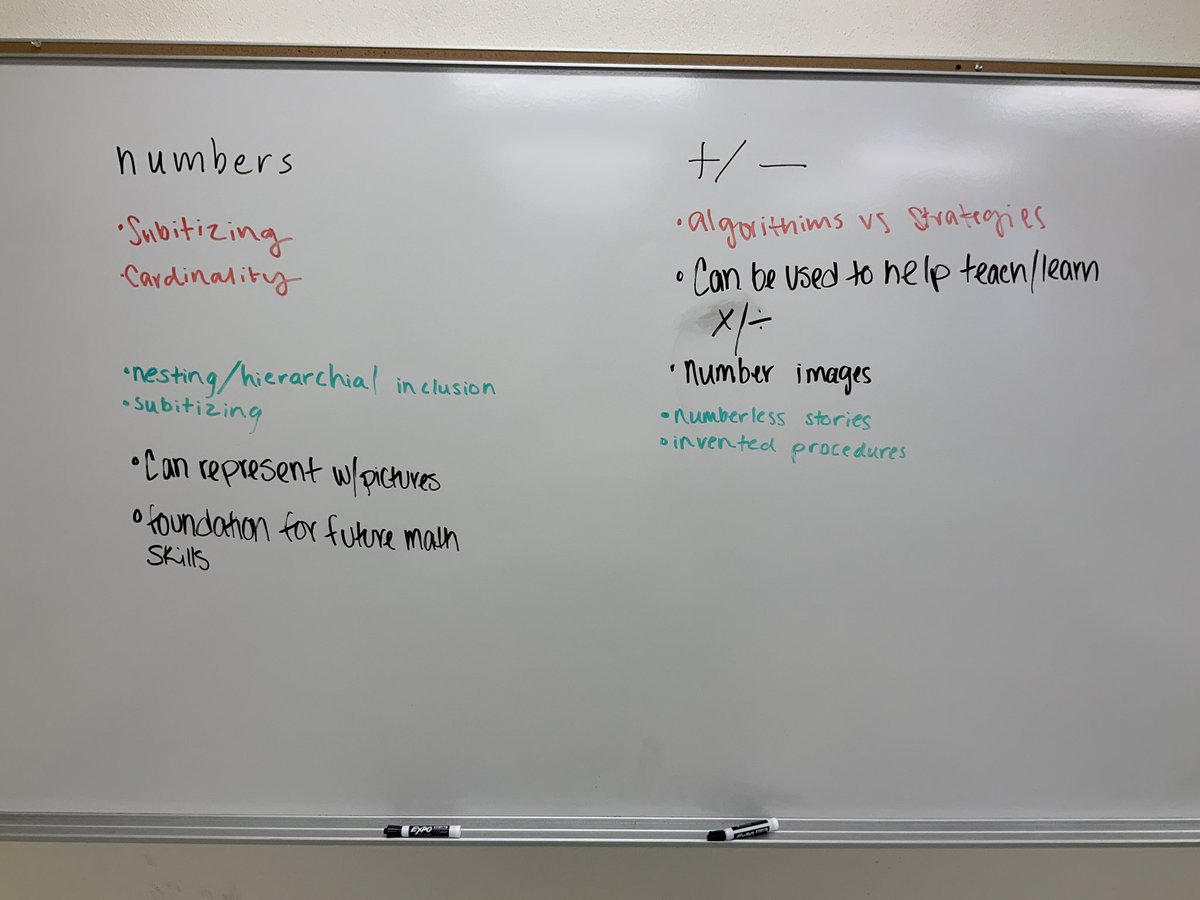 numbers
• Subitizing
• Cardinality
• nesting/hierarchial inclusion
• subitizing
• Can represent w/pictures
• foundation for future math
skills
+/−
• algorithims vs strategies
• Can be used to help teach/learn
x/÷
• number images
• numberless stories
• invented procedures
EXPO